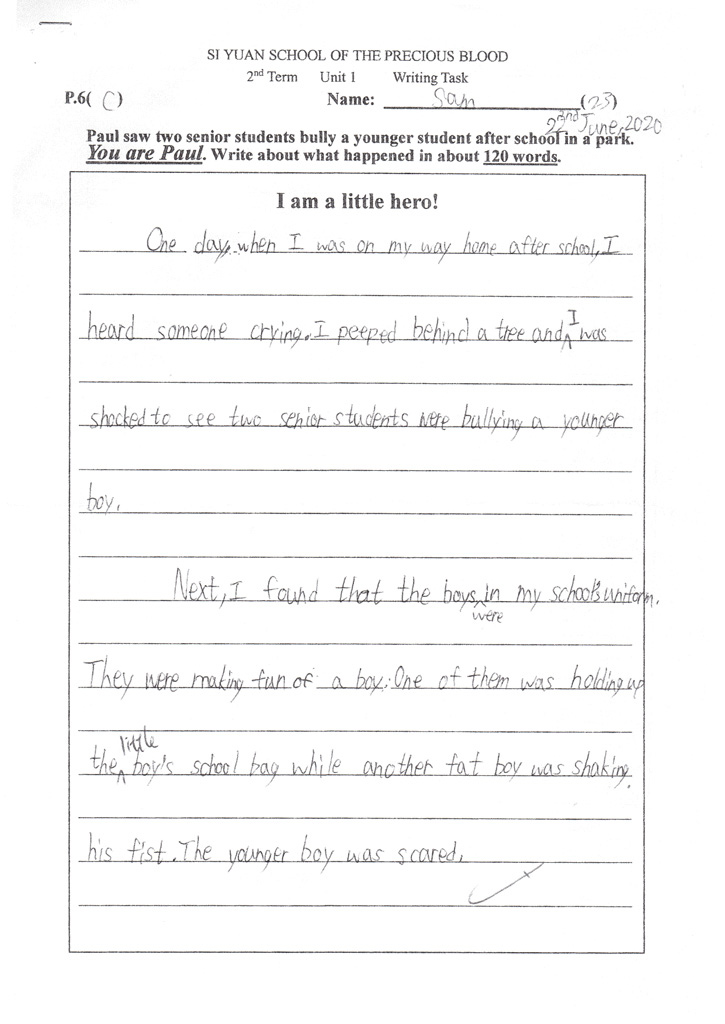 SI YUAN SCHOOL OF THE PRECIOUS BLOOD
2nd Term Unit 1 Writing Task
P.6( C ) Name: Sam (23)
22nd June, 2020
Paul saw two senior students bully a younger student after school in a park.
You are Paul. Write about what happened in about 120 words.
I am a little hero!
One day, when I was on my way home after school, I
heard someone crying. I peeped behind a tree and I was
shocked to see two senior students were bullying a younger
boy.
Next, I found that the boys were in my school's uniform.
They were making fun of a boy. One of them was holding up
the little boy's school bag while another fat boy was shaking
his fist. The younger boy was scared.